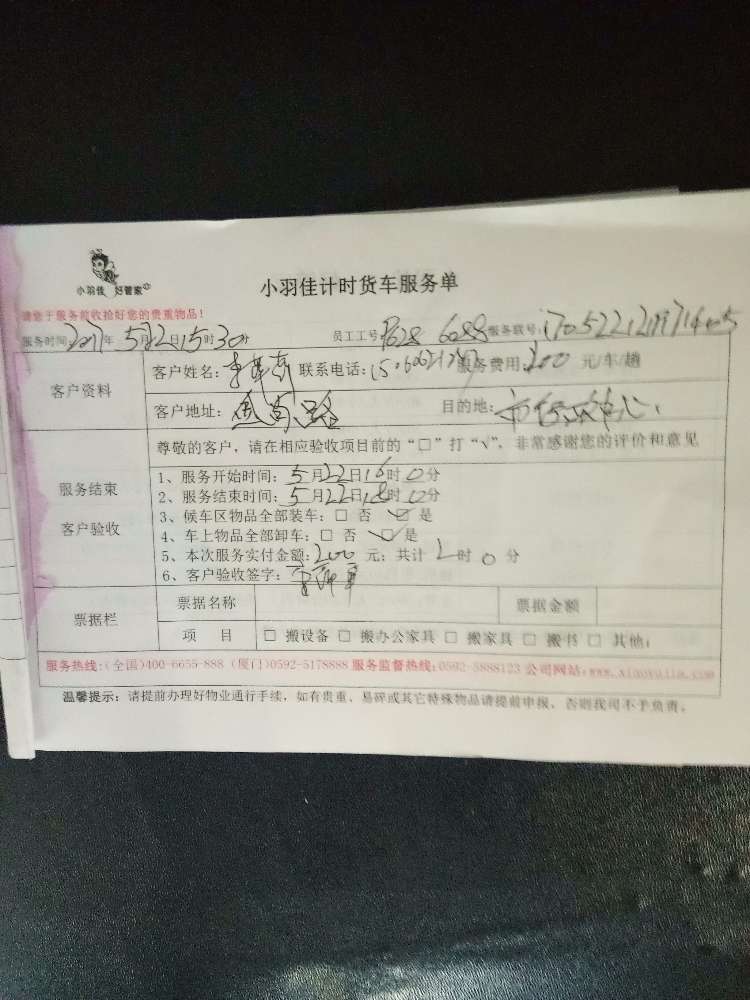 小羽佳 好管家
小羽佳计时货车服务单
请您于服务前收拾好您的贵重物品!
服务时间:2017年5月22日15时30分 员工工号 服务联号:
客户资料 客户姓名: 联系电话: 服务费用:200 元/车/趟
客户地址: 目的地:
尊敬的客户,请在相应验收项目前的“□”打“√”,非常感谢您的评价和意见
服务结束 客户验收
1、服务开始时间:5月22日16时0分
2、服务结束时间:5月22日18时0分
3、候车区物品全部装车:□ 否 ☑ 是
4、车上物品全部卸车:□ 否 ☑ 是
5、本次服务实付金额:200 元;共计 2时0分
6、客户验收签字:
票据栏 票据名称 票据金额
项 目 □ 搬设备 □ 搬办公家具 □ 搬家具 □ 搬书 □ 其他:
服务热线:(全国)400-6655-888 (厦门)0592-5178888 服务监督热线:0592-5888123 公司网站:www.xiaoyujia.com
温馨提示:请提前办理好物业通行手续,如有贵重、易碎或其它特殊物品请提前申报,否则我司不予负责。